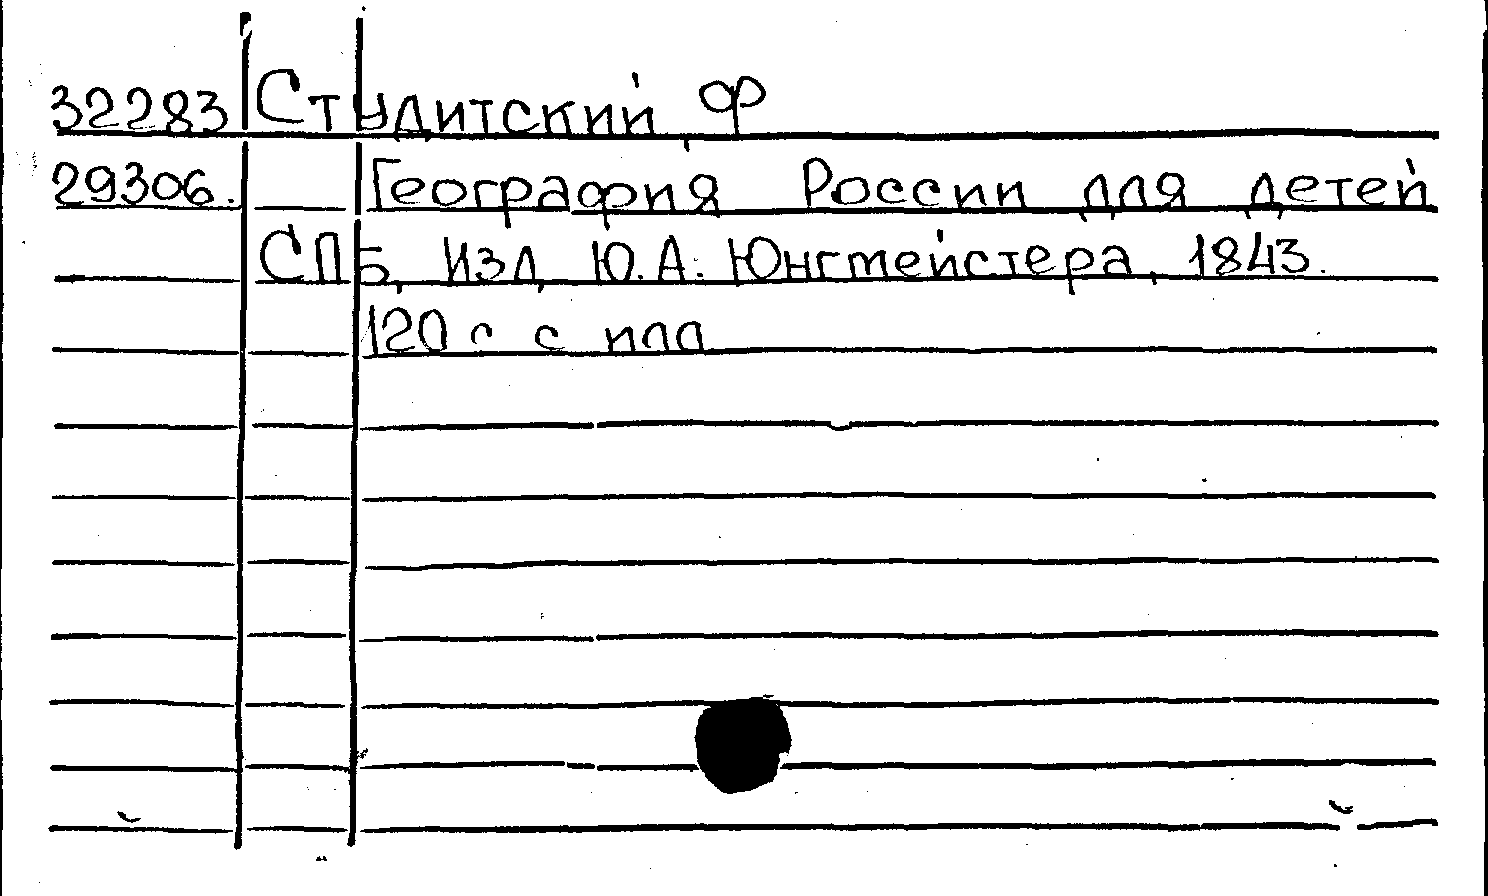 32283 Студитский, Ф
29306. География России для детей
СПБ, Изд, Ю.А. Юнгмейстера, 1843.
120 с с илл